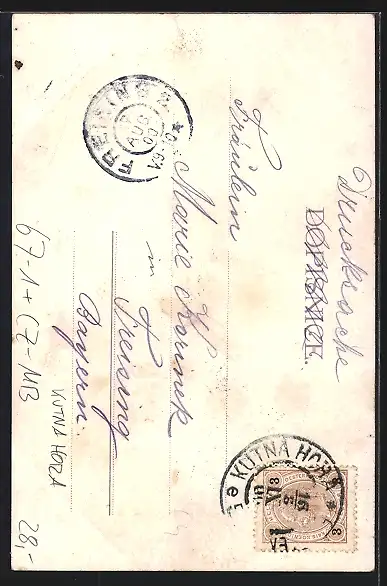 Drucksache
DOPISNICE.
Fräulein
Marie Korinek
in
Freising
Bayern.
FREISING 2
AUG
KUTNÁ HORA
67-1+CZ-NB
KUTNÁ HORA
28,-